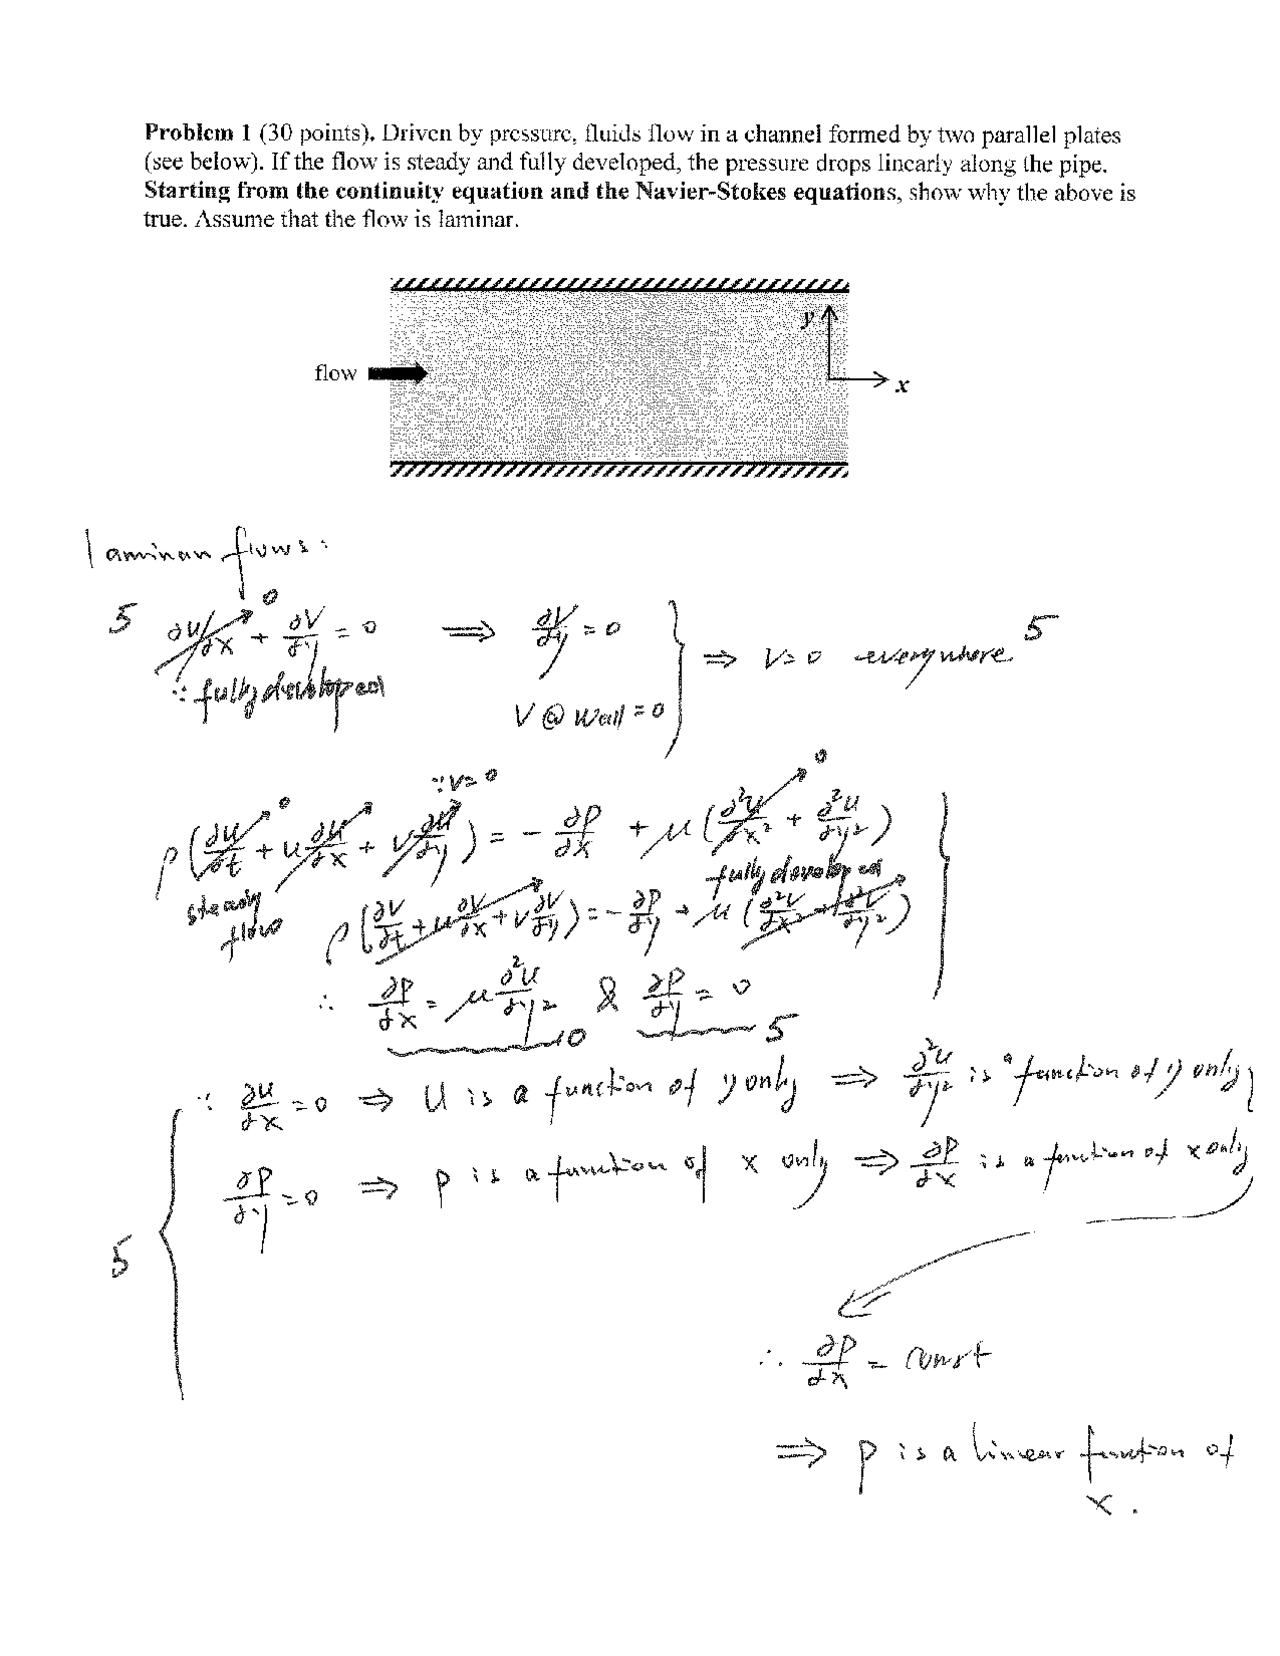 Problem 1 (30 points). Driven by pressure, fluids flow in a channel formed by two parallel plates
(see below). If the flow is steady and fully developed, the pressure drops linearly along the pipe.
Starting from the continuity equation and the Navier-Stokes equations, show why the above is
true. Assume that the flow is laminar.
y
flow
x
laminar flows:
5 ∂u/∂x → 0 + ∂v/∂y = 0 ⇒ ∂v/∂y = 0 } ⇒ v = 0 everywhere 5
∵ fully developed
v @ wall = 0
∵ v = 0
ρ(∂u/∂t → 0 + u ∂u/∂x + v ∂u/∂y) = - ∂p/∂x + μ(∂²u/∂x² → 0 + ∂²u/∂y²)
steady flow
fully developed
ρ(∂v/∂t + u ∂v/∂x + v ∂v/∂y) = - ∂p/∂y + μ(∂²v/∂x² + ∂²v/∂y²)
∴ ∂p/∂x = μ ∂²u/∂y² & ∂p/∂y = 0
10 5
∵ ∂u/∂x = 0 ⇒ u is a function of y only ⇒ ∂²u/∂y² is a function of y only
∂p/∂y = 0 ⇒ p is a function of x only ⇒ ∂p/∂x is a function of x only
5
∴ ∂p/∂x = const
⇒ p is a linear function of
x.